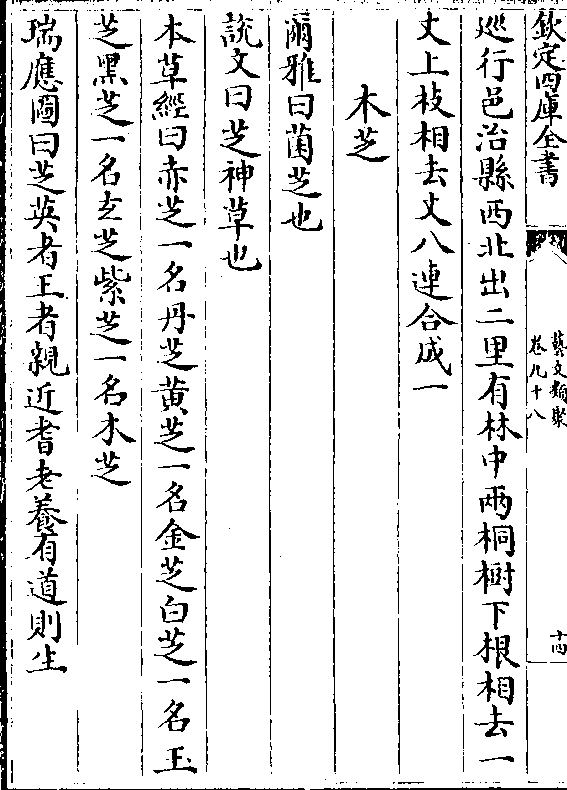 欽定四庫全書
藝文類聚
卷九十八
十四
廵行邑治縣西北出二里有林中兩桐樹下根相去一
丈上枝相去丈八連合成一
木芝
爾雅曰菌芝也
說文曰芝神草也
本草經曰赤芝一名丹芝黄芝一名金芝白芝一名玉
芝黑芝一名玄芝紫芝一名木芝
瑞應圖曰芝英者王者親近耆老養有道則生